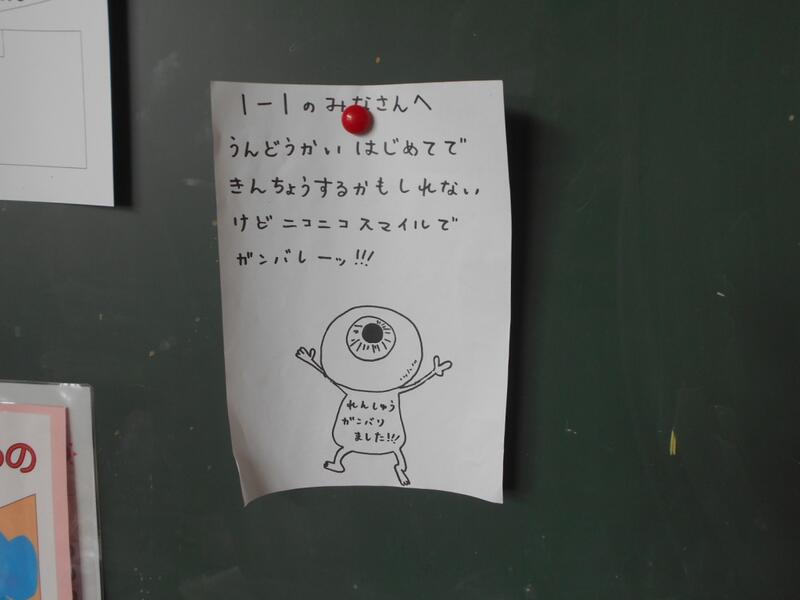 1-1のみなさんへ
うんどうかい はじめてで
きんちょうするかもしれない
けど ニコニコスマイルで
ガンバレーッ!!!
れんしゅう
ガンバり
ました!!!
の